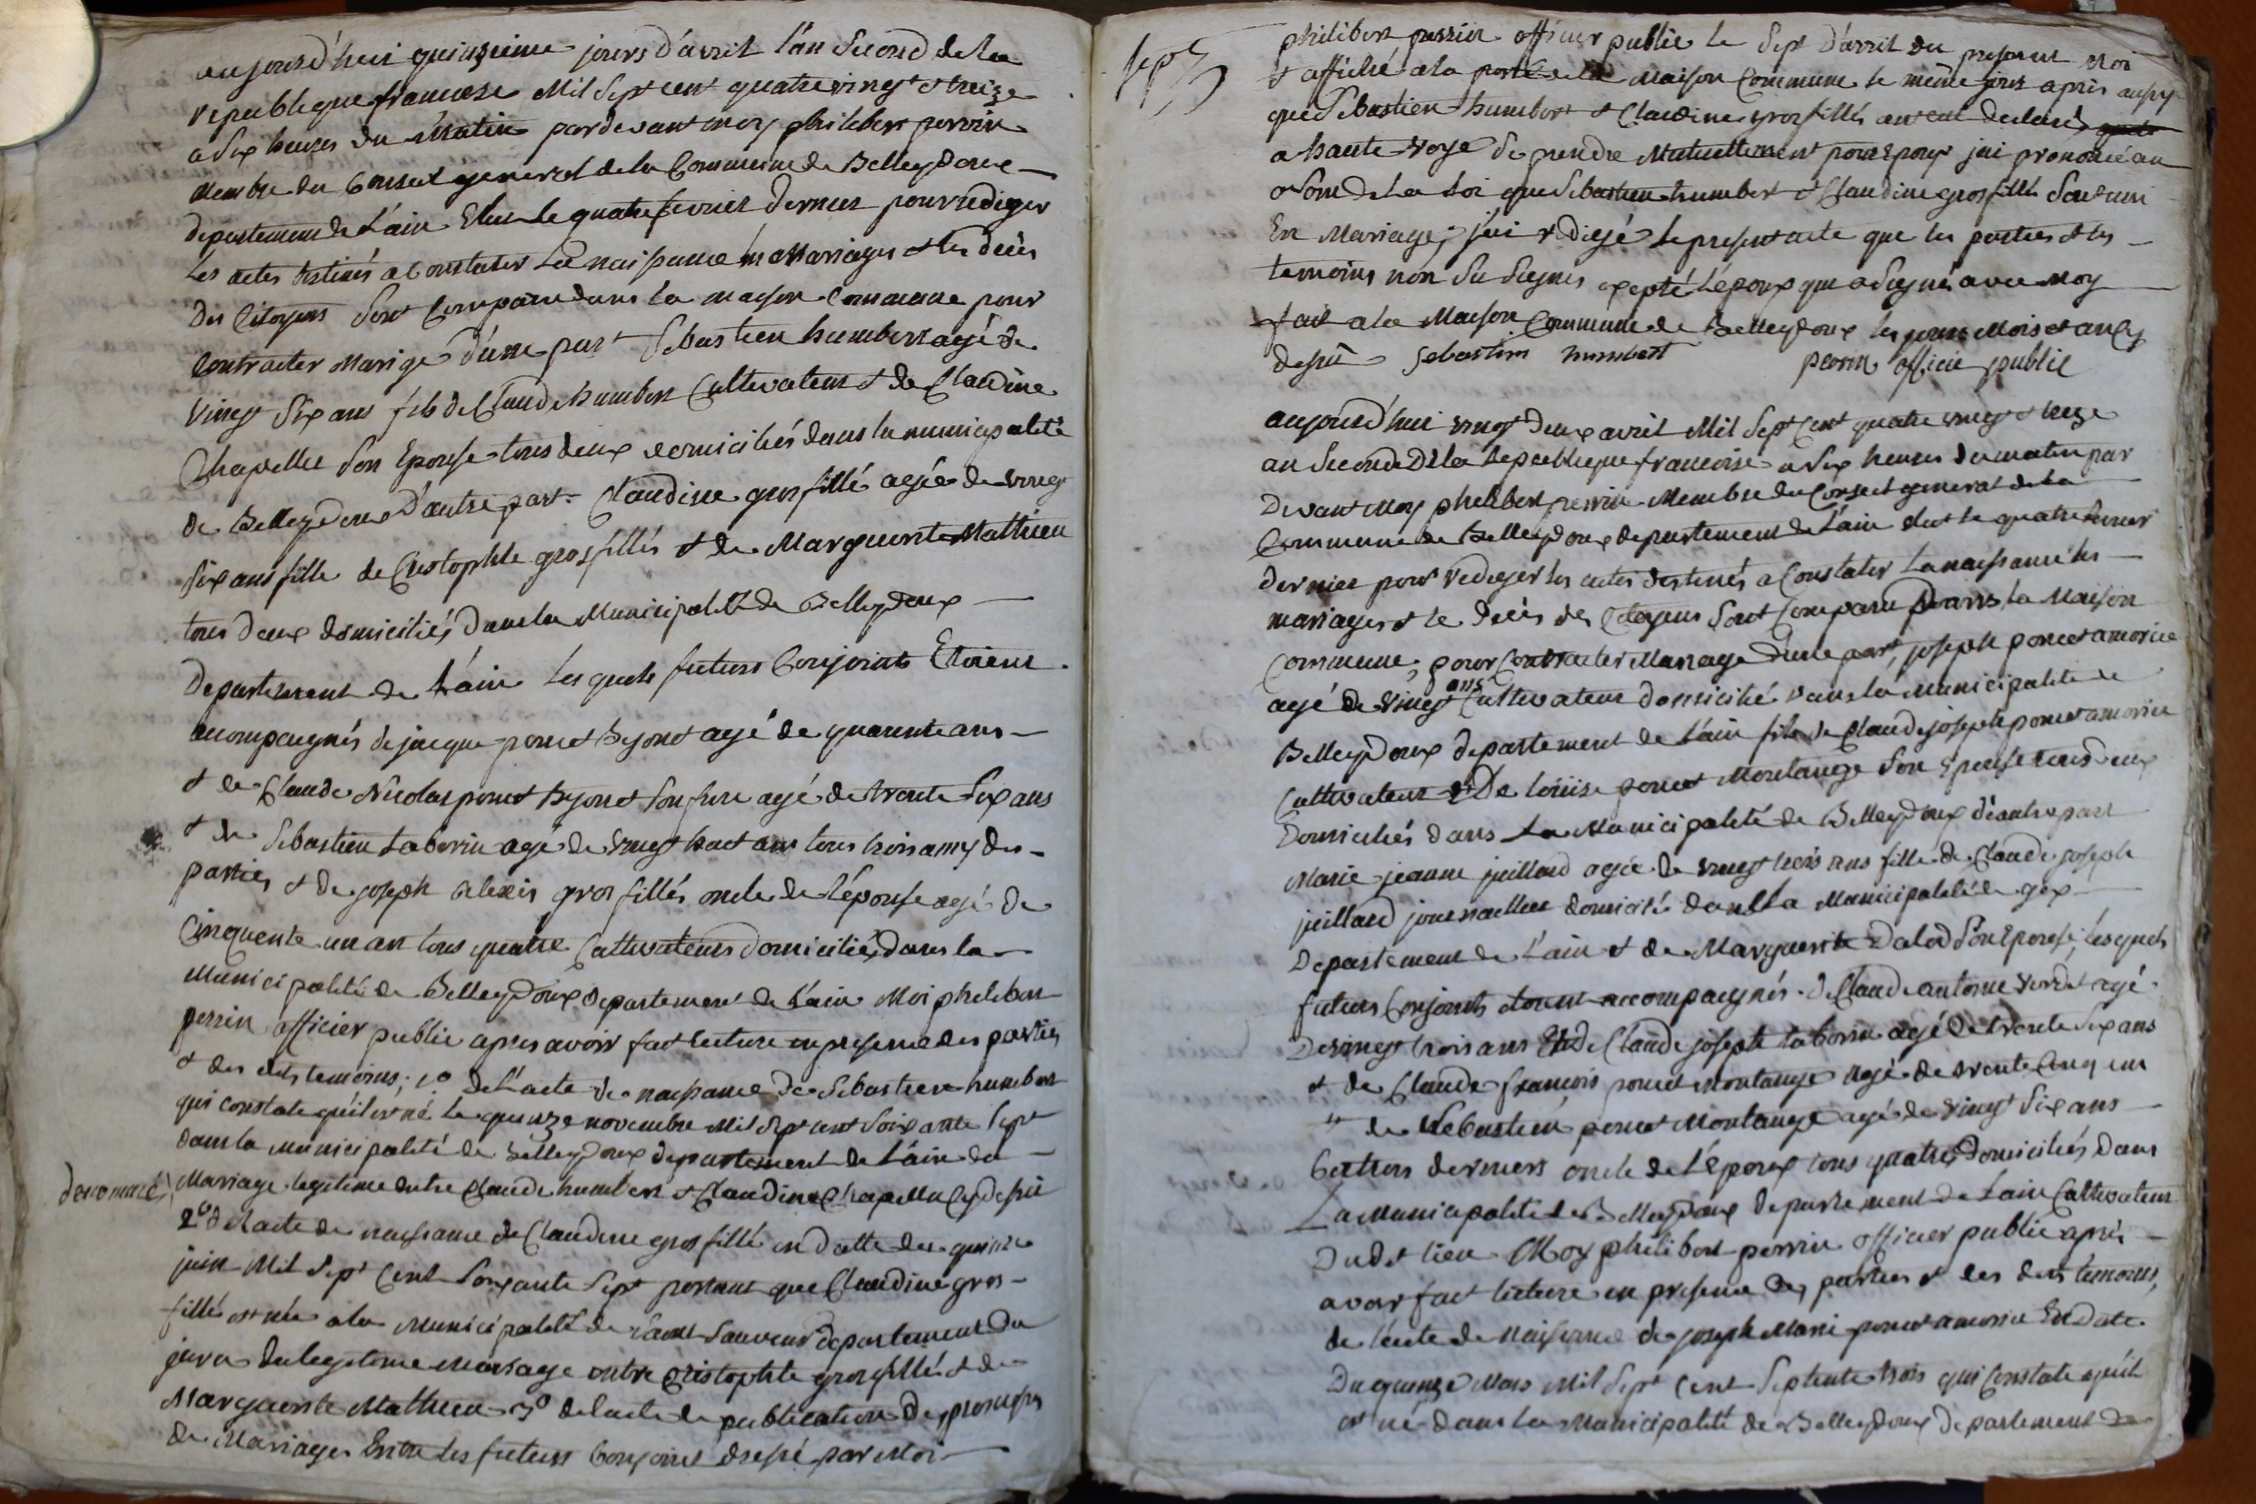 aujourd'huei quinzieme jours d'avril l'an second de la
republeque francoise Mil Sept cent quatre vingt & treize
a Six heures du Matin pardevant moy philibert perrin
Membre du Conseil general de la Commune de Belleydoux
departement de L'ain Elus le quatre fevrier dernier pour rediger
les actes destinés a Constater La naissance les Marriages & les décès
des Citoyens Sont Comparu dans la maison Commune pour
Contracter Mariage d'une part Sebastien humbert agé de
vingt Six ans fils de Claude humbert Cultivateur & de Claudine
Chapellu Son Epouse tous deux domiciliés dans la municipalité
de Belleydoux d'autre part Claudine gros fillé agée de vingt
Six ans fille de Cristophle grosfillés & de Marguerite Mathieu
tous deux domiciliés dans la Municipalité de Belleydoux
departement de L'ain Les quels futurs Conjoints Etoient
acompagnés de jacque poncet Bejonet agé de quarente ans
& de Claude Nicolas poncet Bejonet Son frere agé de trente Six ans
& de Sebastien Taborin agé de vingt huet ans tous trois amy des
parties & de joseph alexis gros fillés oncle de L'épouse agé de
Cinquente un an tous quatre Cultivateurs domiciliés dans la
Municipalité de Belleydoux departement de L'ain Moi philibert
perrin officier public apres avoir fait Lecture en presence des parties
& des dits temoins; 1º de L'acte de naissance de Sebastien humbert
qui constate qu'il est né le quinze novembre Mil Sept cent Soixante Sept
dans la Municipalité de Belleydoux departement de L'ain du
Mariage legitime entre Claude humbert & Claudine Chapellu Cy dessu
2º de L'acte de naissance de Claudine gros fillé en datte du quinze
juin Mil Sept Cent Soixante Sept portant que Claudine gros
fillé est née a la Municipalité de Saint Sauveur departement du
jura du legitime Mariage entre Cristophle gros fillé & de
Marguerite Mathieu 3º de L'acte de publication de promesses
de Mariages Entre les futurs Conjoints dressé par Moi
philibert perrin officier public le Sept d'avril du present Moi
& affiché a la porte de la Maison Commune le même jour après aussy
que Sebastien humbert & Claudine gros fillés ont eut declaré
a haute voye de prendre Mutuellement pour Epoux jai prononcé au
nom de La Loi que Sebastien humbert & Claudine gros fillé Sont uni
En Mariage; j'ai redigé Le present acte que les parties & les
temoins non Su Signes expté L'époux que a Signé avec Moy
fait a la Maison Commune de Belleydoux les jours Mois et an Cy
dessu Sebastien humbert perrin officie public
aujourd'hui vingt deux avril Mil Sept Cent quatre vingt & treze
an Second De la Republeque francoise a Six heures du matin par
Devant Moy philibert perrin Membre du Conseil general de La
Commune de Belleydoux departement de L'ain elut le quatre fevrier
dernier pour rediger les actes destinés a Constater La naissance les
mariages & le decès des Citoyens Sont Comparu Dans la Maison
Commune, pour Contracter Mariage d'une part, joseph poncet amorice
agé de vingt ans Cultivateur domicilié dans la Municipalité de
Belleydoux departement de L'ain fils de Claude joseph poncet amorice
Cultivateur & De Louise poncet Montange Son Epouse tous deux
Domiciliés dans La Municipalité de Belleydoux d'autre part
Marie jeanne juillard agée de vingt trois ans fille de Claude joseph
juillard journallier domicilé dans La Municipalité de gex
Departement de L'ain & de Marguerite Dalod Son Epouse, Lesquels
futurs Conjoints etoient accompagnés de Claude antoine verdet agé
De vingt trois ans Et de Claude joseph taborin agé De trente Six ans
& de Claude francois poncet Montange agé de trente Cinq ans
& de Sebastien poncet Montange agé de vingt Six ans
derniers oncle de L'époux tous quatre domiciliés dans
La Municipalité de Belleydoux departement de L'ain Cultivateur
Dudit lieu Moy philibert perrin officier public après
avoir fait lecture en presence des parties & des dits temoins,
de L'acte de Naissance de joseph Marie poncet amorice En date
Du quinze Mars Mil Sept Cent Septente trois qui Constate qu'il
est né dans La Municipalité de Belleydoux departement de